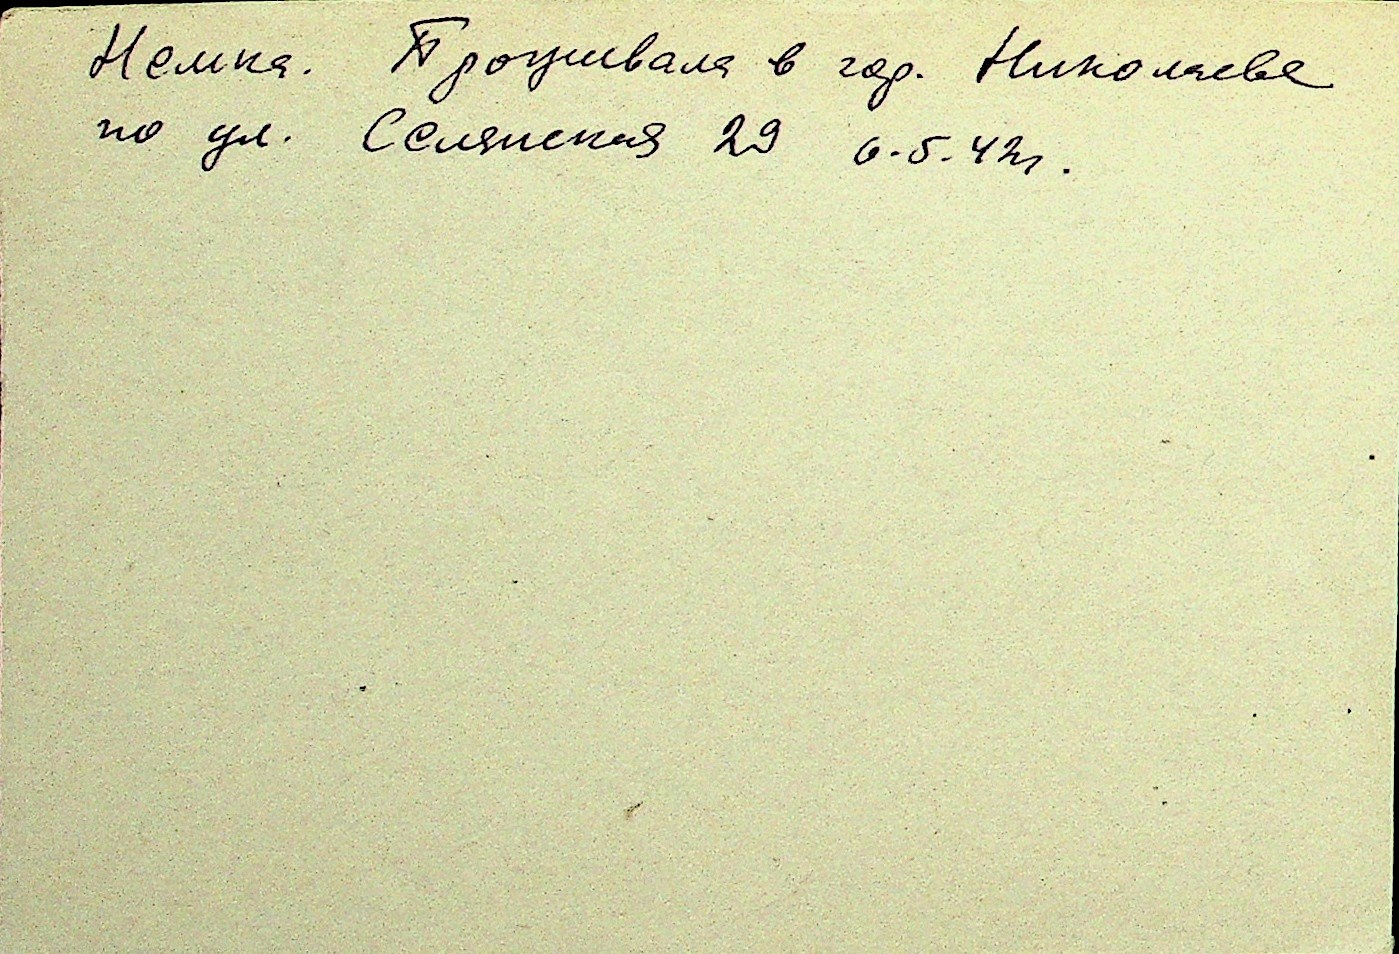 Немка. Проживала в гор. Николаеве
по ул. Селянская 29 6.5.42г.